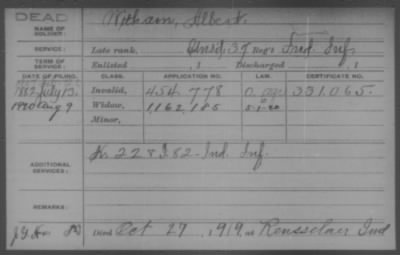 DEAD
NAME OF SOLDIER: Witham, Albert.
SERVICE: Late rank, Unasd, 37 Reg't Ind. Inf.
TERM OF SERVICE: Enlisted , 1 Discharged , 1
DATE OF FILING. CLASS. APPLICATION NO. LAW. CERTIFICATE NO.
1882 July 13. Invalid, 454 778 331.065.
1920 Aug 9 Widow, 1162,185 5-1-20
Minor,
ADDITIONAL SERVICES: K. 22 & I. 82 - Ind. Inf.
REMARKS:
Died Oct 27, 1919, at Rensselaer Ind